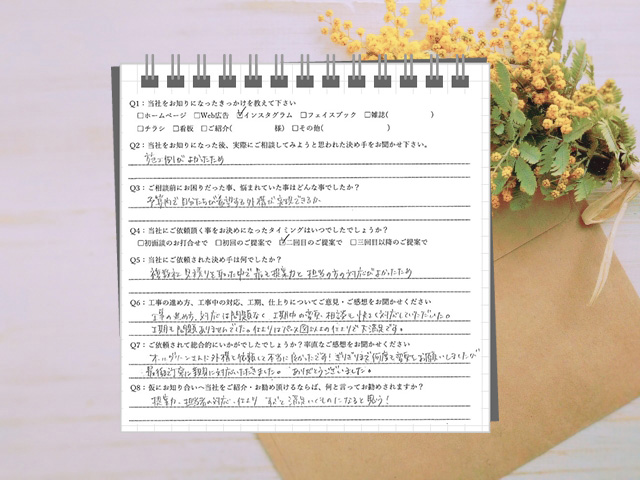 Q1：当社をお知りになったきっかけを教えて下さい
□ホームページ □Web広告 ☑インスタグラム □フェイスブック □雑誌( )
□チラシ □看板 □ご紹介( 様) □その他( )
Q2：当社をお知りになった後、実際にご相談してみようと思われた決め手をお聞かせ下さい。
施工例がよかったため
Q3：ご相談前にお困りだった事、悩まれていた事はどんな事でしたか？
予算内で自分たちが希望する外構が実現できるか
Q4：当社にご依頼頂く事をお決めになったタイミングはいつでしたでしょうか？
□初面談のお打合せで □初回のご提案で ☑二回目のご提案で □三回目以降のご提案で
Q5：当社にご依頼された決め手は何でしたか？
複数社見積りを取った中で最も提案力と担当の方の対応がよかったため
Q6：工事の進め方、工事中の対応、工期、仕上りについてご意見・ご感想をお聞かせください
工事の進め方、対応は問題なく 工期中の変更、相談も快く対応していただいた。
工期も問題ありませんでした。仕上りはパース図以上の仕上りで大満足です。
Q7：ご依頼されて総合的にいかがでしたでしょうか？率直なご感想をお聞かせください
さんに外構を依頼して本当に良かったです！ぎりぎりまで何度も変更をお願いしましたが
最後まで 親身に対応いただきました。ありがとうございました。
Q8：仮にお知り合いへ当社をご紹介・お勧め頂けるならば、何と言ってお勧めされますか？
提案力、担当者の対応、仕上り すごく満足いくものになると思う！